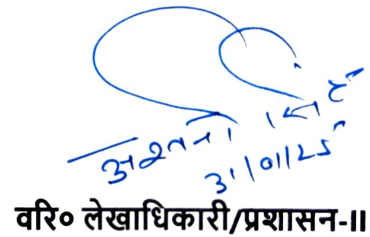 अश्वनी
31/01/25
वरि० लेखाधिकारी/प्रशासन-II